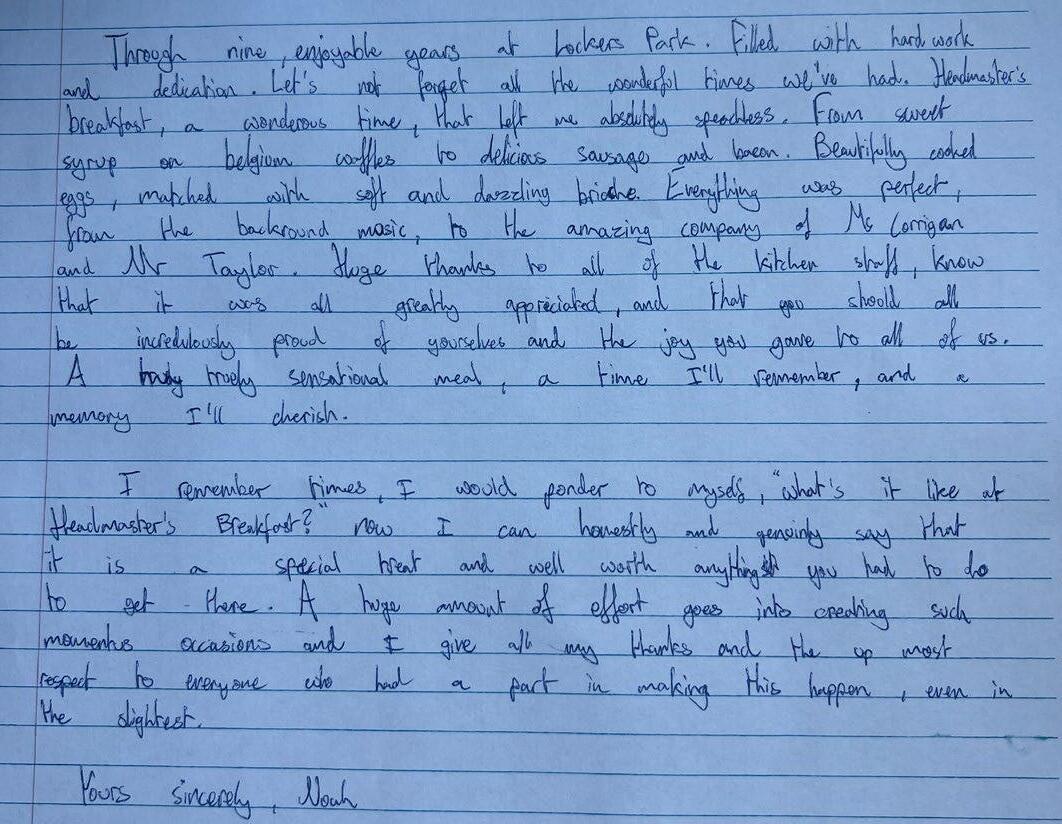 Through nine, enjoyable years at Lockers Park. Filled with hard work
and dedication. Let's not forget all the wonderful times we've had. Headmaster's
breakfast, a wonderous time, that left me absolutely speachless. From sweet
syrup on belgium waffles to delicious sausage and bacon. Beautifully cooked
eggs, matched with soft and dazzling . Everything was perfect,
from the backround music, to the amazing company of Ms Corrigan
and Mr Taylor. Huge thanks to all of the kitchen staff, know
that it was all greatly appreciated, and that you should all
be incredulously proud of yourselves and the joy you gave to all of us.
A truely sensational meal, a time I'll remember, and a
memory I'll cherish.
I remember times, I would ponder to myself, "what's it like at
Headmaster's Breakfast?" now I can honestly and genuinly say that
it is a special treat and well worth anything you had to do
to get there. A huge amount of effort goes into creating such
occasions and I give all my thanks and the up most
respect to everyone who had a part in making this happen, even in
the slightest.
Yours sincerely, Noah